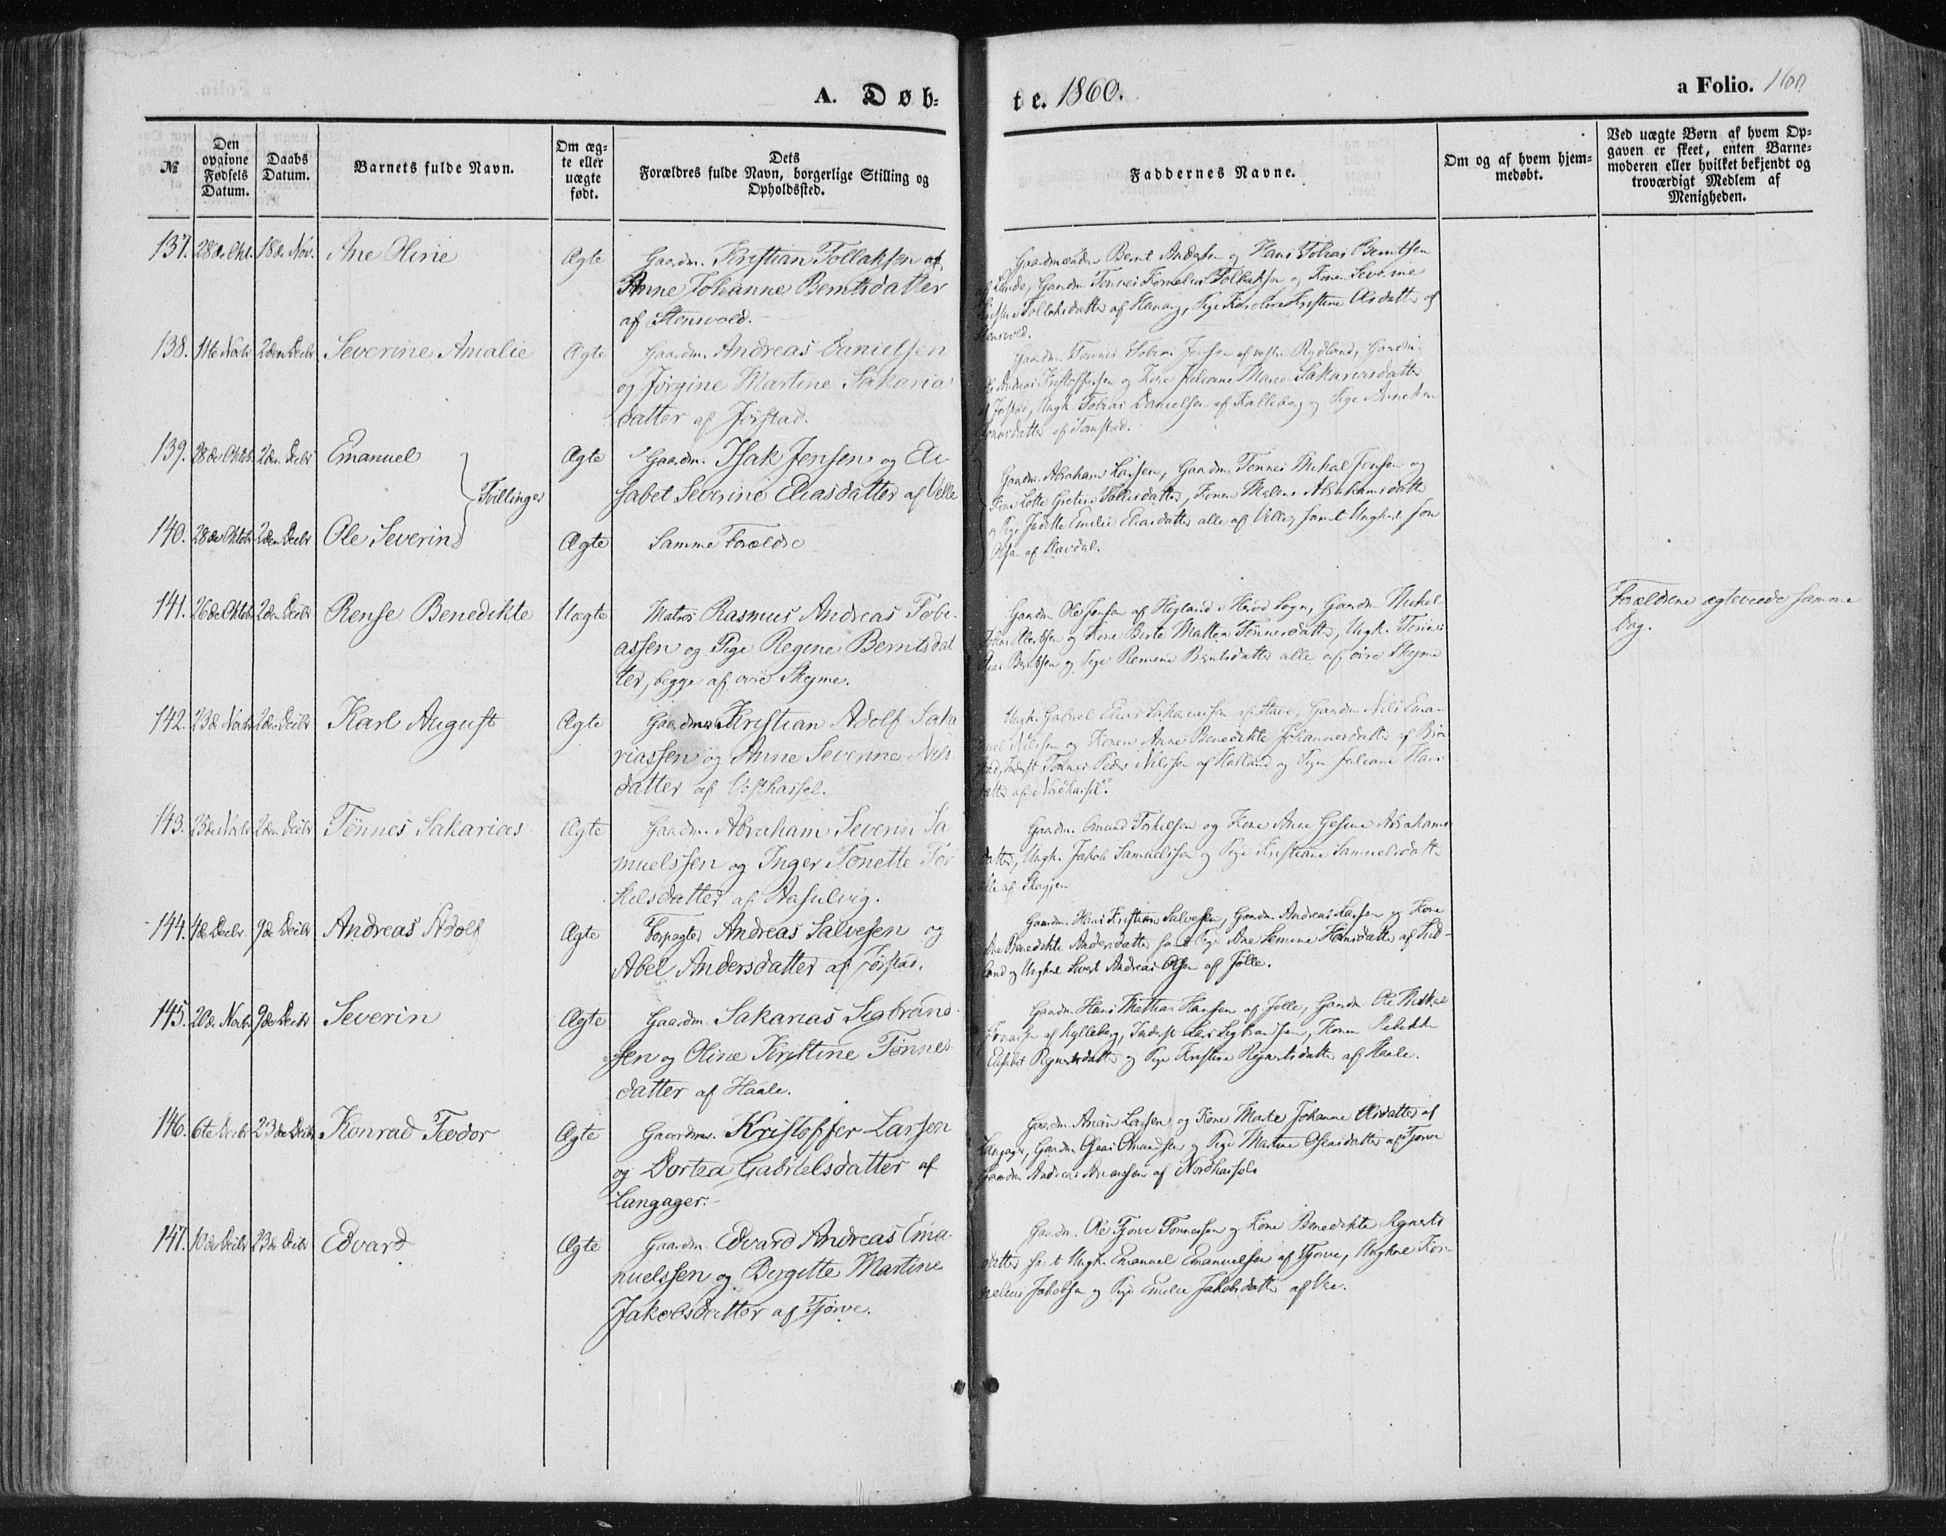 A. Døb-
te. 1860.
a Folio. 160
№
Den opgivne Fødsels Datum.
Daabs Datum.
Barnets fulde Navn.
Om æg-te eller uægte født.
Dets Forældres fulde Navn, borgerlige Stilling og Opholdssted.
Faddernes Navne.
Om og af hvem hjem-medøbt.
Ved uægte Børn af hvem Op-gaven er skeet, enten Barne-moderen eller hvilket bekjendt og troværdigt Medlem af Menigheden.
137. 28de Okt. 18de Nov. Ane Oline Ægte Gaardm. Kristian Tollaksen og
Anne Johanne Berntsdatter
af Stensvold.
Gaardmænden Bernt Andersen og Hans Tobias Berntsen
af Lunde, Gaardm. Tønnes Kornelius Tollaksen og Konen Severine
Tollaksdatter af Hanang, Pige Karoline Kristine Olsdatter af
Stensvold.
138. 2den Decbr Severine Amalie Ægte Gaardm. Andreas Danielsen
og Jørgine Martine Sakarias
datter af Jørstad.
Gaardm. Tønnes Tobias Jensen af vestre Rydland, Gaardm.
Andreas Kristoffersen og Kone Juliane Marie Sakariasdatter
af Jørstad, Ungk. Tobias Danielsen af Kalleberg og Pige Anneken
datter af Tomstad.
139. 28de Oktobr 2den Decbr Emanuel Ægte Gaardm. Isak Jensen og Eli-
sabet Severine Eliasdatter af Velle
Tvillinger
Gaardm. Abraham Larsen, Gaardm. Tønnes Mikal Jensen og
Kone Lotte Gretine datter, Konen Malene Abrahamsdatter
og Pige Jadette Emilie Eliasdatter alle af Velle, samt Ungkarl Jon
Olsen af Stavdal.
140. 28de Oktobr 2den Decbr Ole Severin Ægte Samme Forældre
141. 26de Oktobr 2den Decbr Rense Benedikte Uægte Matros Rasmus Andreas Tobi-
assen og Pige Regine Berntsdat-
ter, begge af øvre Skeime.
Gaardm. Ole Jensen af Hegland i Herod Sogn, Gaardm. Mikal
og Kone Berte Matten Tønnesdatter, Ungk. Tønnes
Elias Berntsen og Pige Romene Berntsdatter alle af øvre Skeime
Forældrene ægteviede samme
Dag.
142. 23de Novbr 2den Decbr Karl August Ægte Gaardm. Kristian Adolf Saka
riassen og Anne Severine Nils
datter af Vesthassel.
Ungk. Gabriel Elias Sakariassen af Stave, Gaardm. Nils Ema-
nuel Nilssen og Konen Anne Benedikte Johannesdatter af
Inderst Tønnes Peder Nilssen af Halland og Pige Juliane Hans
datter af Nordhassel.
143. 23de Novbr 2den Decbr Tønnes Sakarias Ægte Gaardm. Abraham Severin Sa
muelssen og Inger Tonette Tor
kilsdatter af Aasulvig.
Gaardm. Omund Torkilsen og Kone Ane Gesine Abrahams
datter, Ungk. Jakob Samuelssen og Pige Kristiane Samuelsdatter
alle af Skagjen
144. 4de Decbr 9de Decbr Andreas Adolf Ægte Forpagter Andreas Salvesen og
Abel Andersdatter af Jørstad.
Gaardm. Hans Kristian Salvesen, Gaardm. Andreas Larsen og Kone
Benedikte Andersdatter samt Pige Ane Semine Hansdatter af
land og Ungkarl Sivert Andreas Olsen af Jølle.
145. 20de Novbr 9de Decbr Severin Ægte Gaardm. Sakarias Sigbrand-
sen og Oline Kristine Tønnes-
datter af Haale.
Gaardm. Hans Mathias Hansen af Jølle, Gaardm. Ole Mikal
af Kylleberg, Inderst Lars Sigbrandsen, Konen Rebekka
Elisabet Reinertsdatter og Pige Kristine Reinertsdatter af Haale.
146. 6te Decbr 23de Decbr Konrad Teodor Ægte Gaardm. Kristoffer Larsen
og Dortea Gabrielsdatter af
Langager.
Gaardm. Anan Larsen og Kone Marte Johanne Olsdatter af
Langager, Gaardm. Oseas Omundsen og Pige Martine Oseasdatter af Tjørve
Gaardm. Andreas Andreassen af Nordhassel.
147. 23de Decbr Edvard Ægte Gaardm. Edvard Andreas Ema-
nuelssen og Birgitte Martine
Jakobsdatter af Tjørve.
Gaardm. Ole Tjørve Tønnessen og Kone Benedikte Reinerts
datter samt Ungk. Emanuel Emanuelsen af Tjørve, Ungkarl Kor-
nelius Jakobsen og Pige Emilie Jakobsdatter af Vee.